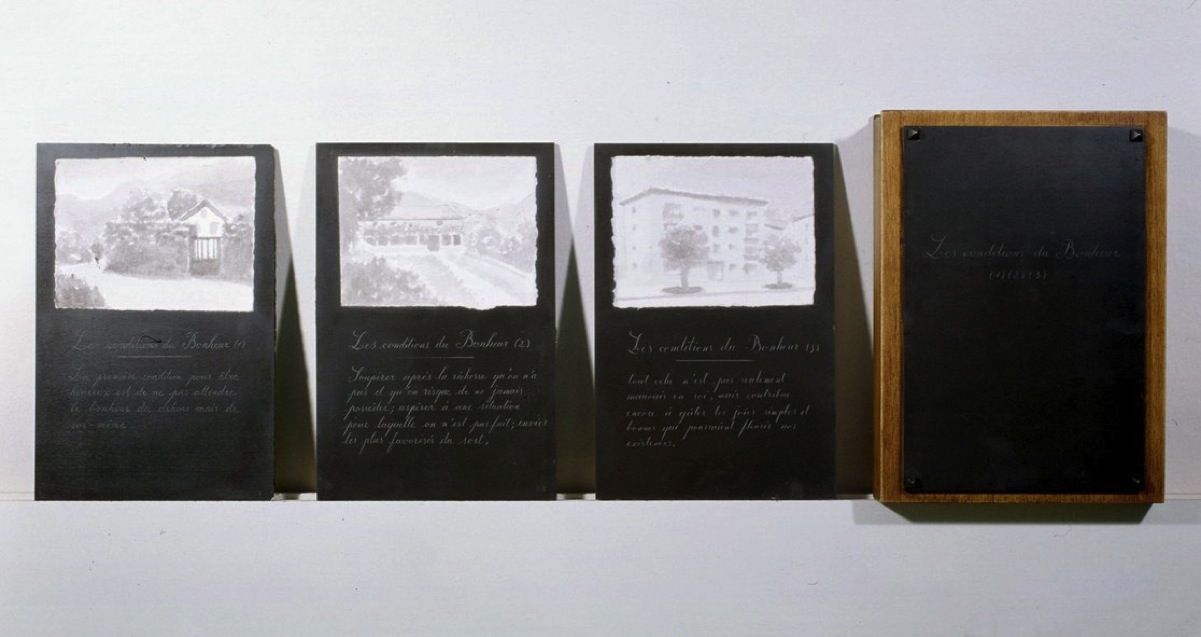 Les conditions du Bonheur (1)
La première condition pour être
heureux est de ne pas attendre
le bonheur du dehors mais de
soi-même
Les conditions du Bonheur (2)
Soupirer après la richesse qu'on n'a
pas et qu'on risque de ne jamais
posséder; aspirer à une situation
pour laquelle on n'est pas fait; envier
les plus favorisés du sort.
Les conditions du Bonheur (3)
tout cela n'est pas seulement
mauvais en soi, mais contribue
encore à gâter les joies simples et
bonnes qui pourraient fleurir nos
existences.
Les conditions du Bonheur
(1) (2) (3)